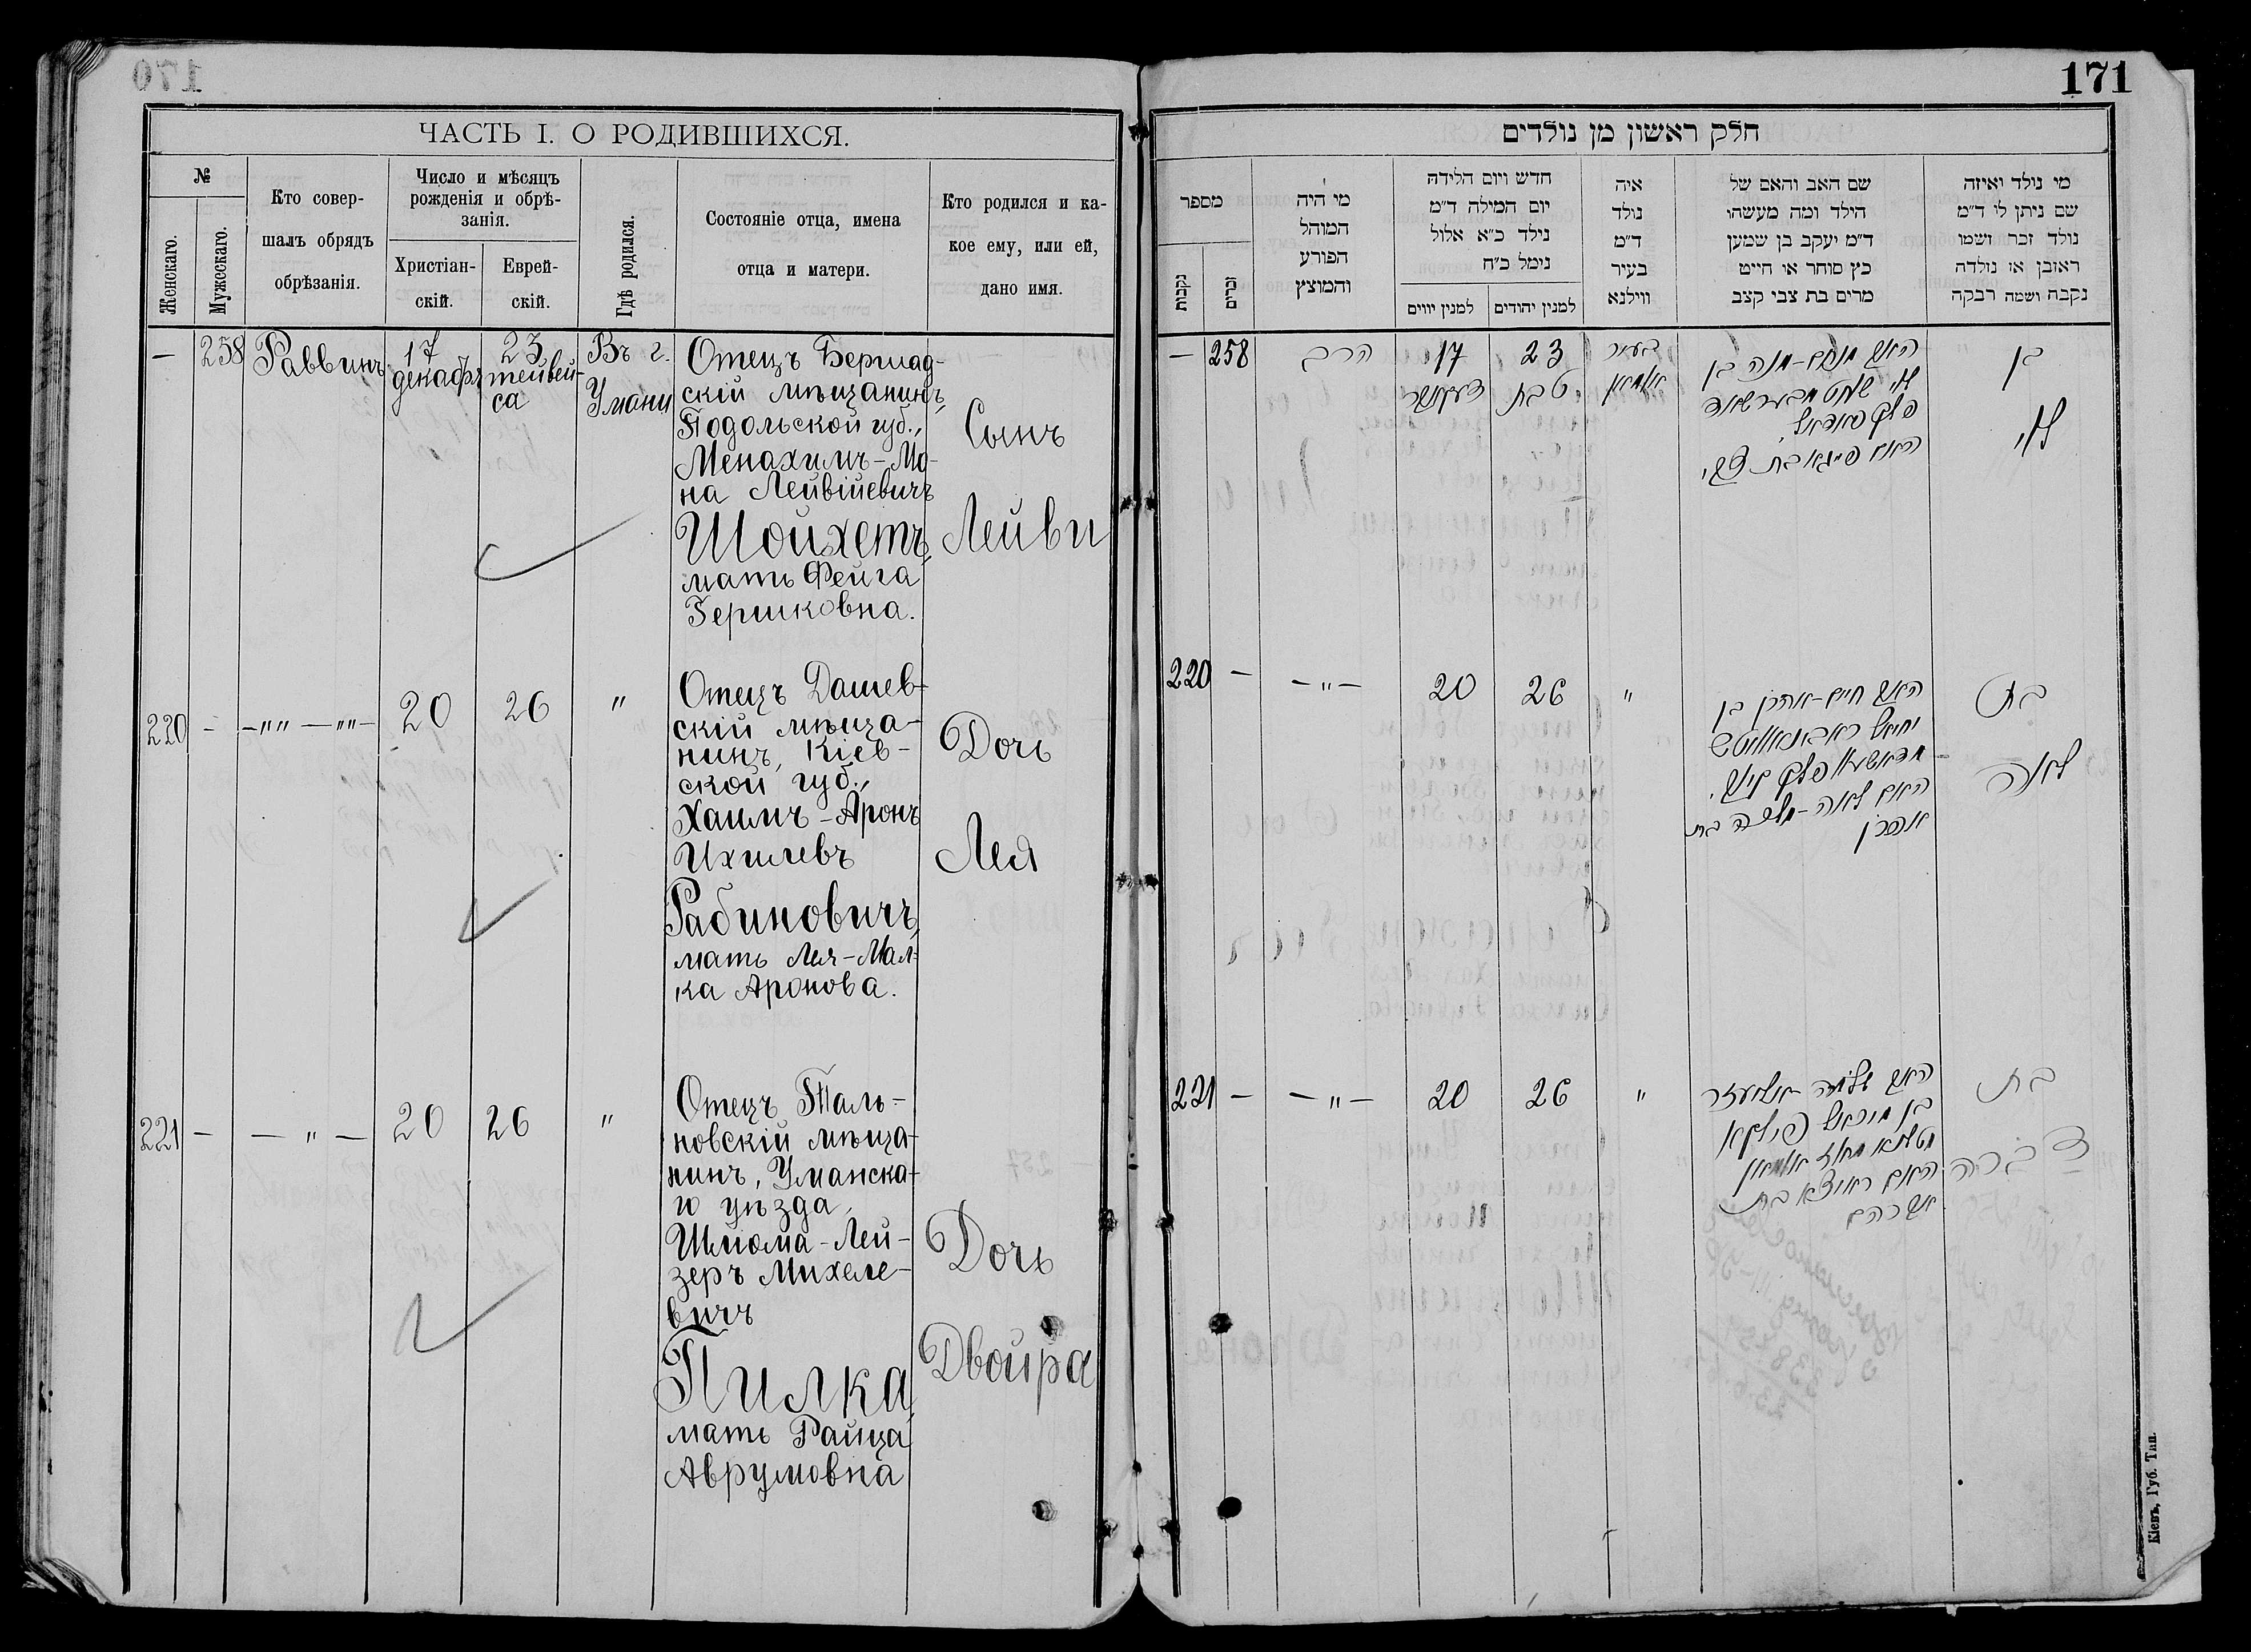 170
ЧАСТЬ I. О РОДИВШИХСЯ.
№
Женскаго.
Мужескаго.
Кто совер-
шалъ обрядъ
обрѣзанія.
Число и мѣсяцъ
рожденія и обрѣ-
занія.
Христіан-
скій.
Еврей-
скій.
Гдѣ родился.
Состояніе отца, имена
отца и матери.
Кто родился и ка-
кое ему, или ей,
дано имя.
— 258 Раввинъ
17
декабр
23
тейвей-
са
Въ г.
Умани
Отецъ Бершад-
скій мѣщанинъ,
Подольской губ.,
Менахимъ-Мо-
на Лейвіевичъ
Шойхетъ,
мать Фейга
Гершковна.
Сынъ
Лейви
220 - -"" —""- 20 26 "
Отецъ Дашев-
скій мѣща-
нинъ, Кіев-
ской губ.,
Хаимъ-Аронъ
Ихилевъ
Рабиновичъ,
мать Лея-Мал-
ка Аронова.
Дочь
Лея
221 — — " — 20 26 "
Отецъ Таль-
новскій мѣща-
нинъ, Уманска-
го уѣзда,
Шліома-Лей-
зеръ Михеле-
вичъ
Пилка,
мать Райца
Аврумовна
Дочь
Двойра
171
חלק ראשון מן נולדים
מספר
נקבות
זכרים
מי היה
המוהל
הפורע
והמוצץ
חדש ויום הלידה
יום המילה ד"מ
נילד כ"א אלול
נימל כ"ח
למנין יווים
למנין יהודים
איה
נולד
ד"מ
בעיר
ווילנא
שם האב והאם של
הילד ומה מעשהו
ד"מ יעקב בן שמען
כץ סוחר או חייט
מרים בת צבי קצב
מי נולד ואיזה
שם ניתן לו ד"מ
נולד זכר ושמו
ראובן או נולדה
נקבה ושמה רבקה
— 258
הרב
17
23
טבת
בעיר
אומאן
האב מנחם-מנה בן
לוי שוחט
פלך פאדאל
האם פייגא בת צבי
בן
לוי
220 - -"- 20 26 "
האב חיים-אהרן בן
יחיאל ראבינאוויטש
האם לאה-מלכה בת
אהרן
בת
לאה
221 — — " — 20 26 "
האב שלמה אליעזר
בן מיכאל פילקא
האם רייצא בת
אברהם
בת
דברה
Кіевъ, Губ. Тип.